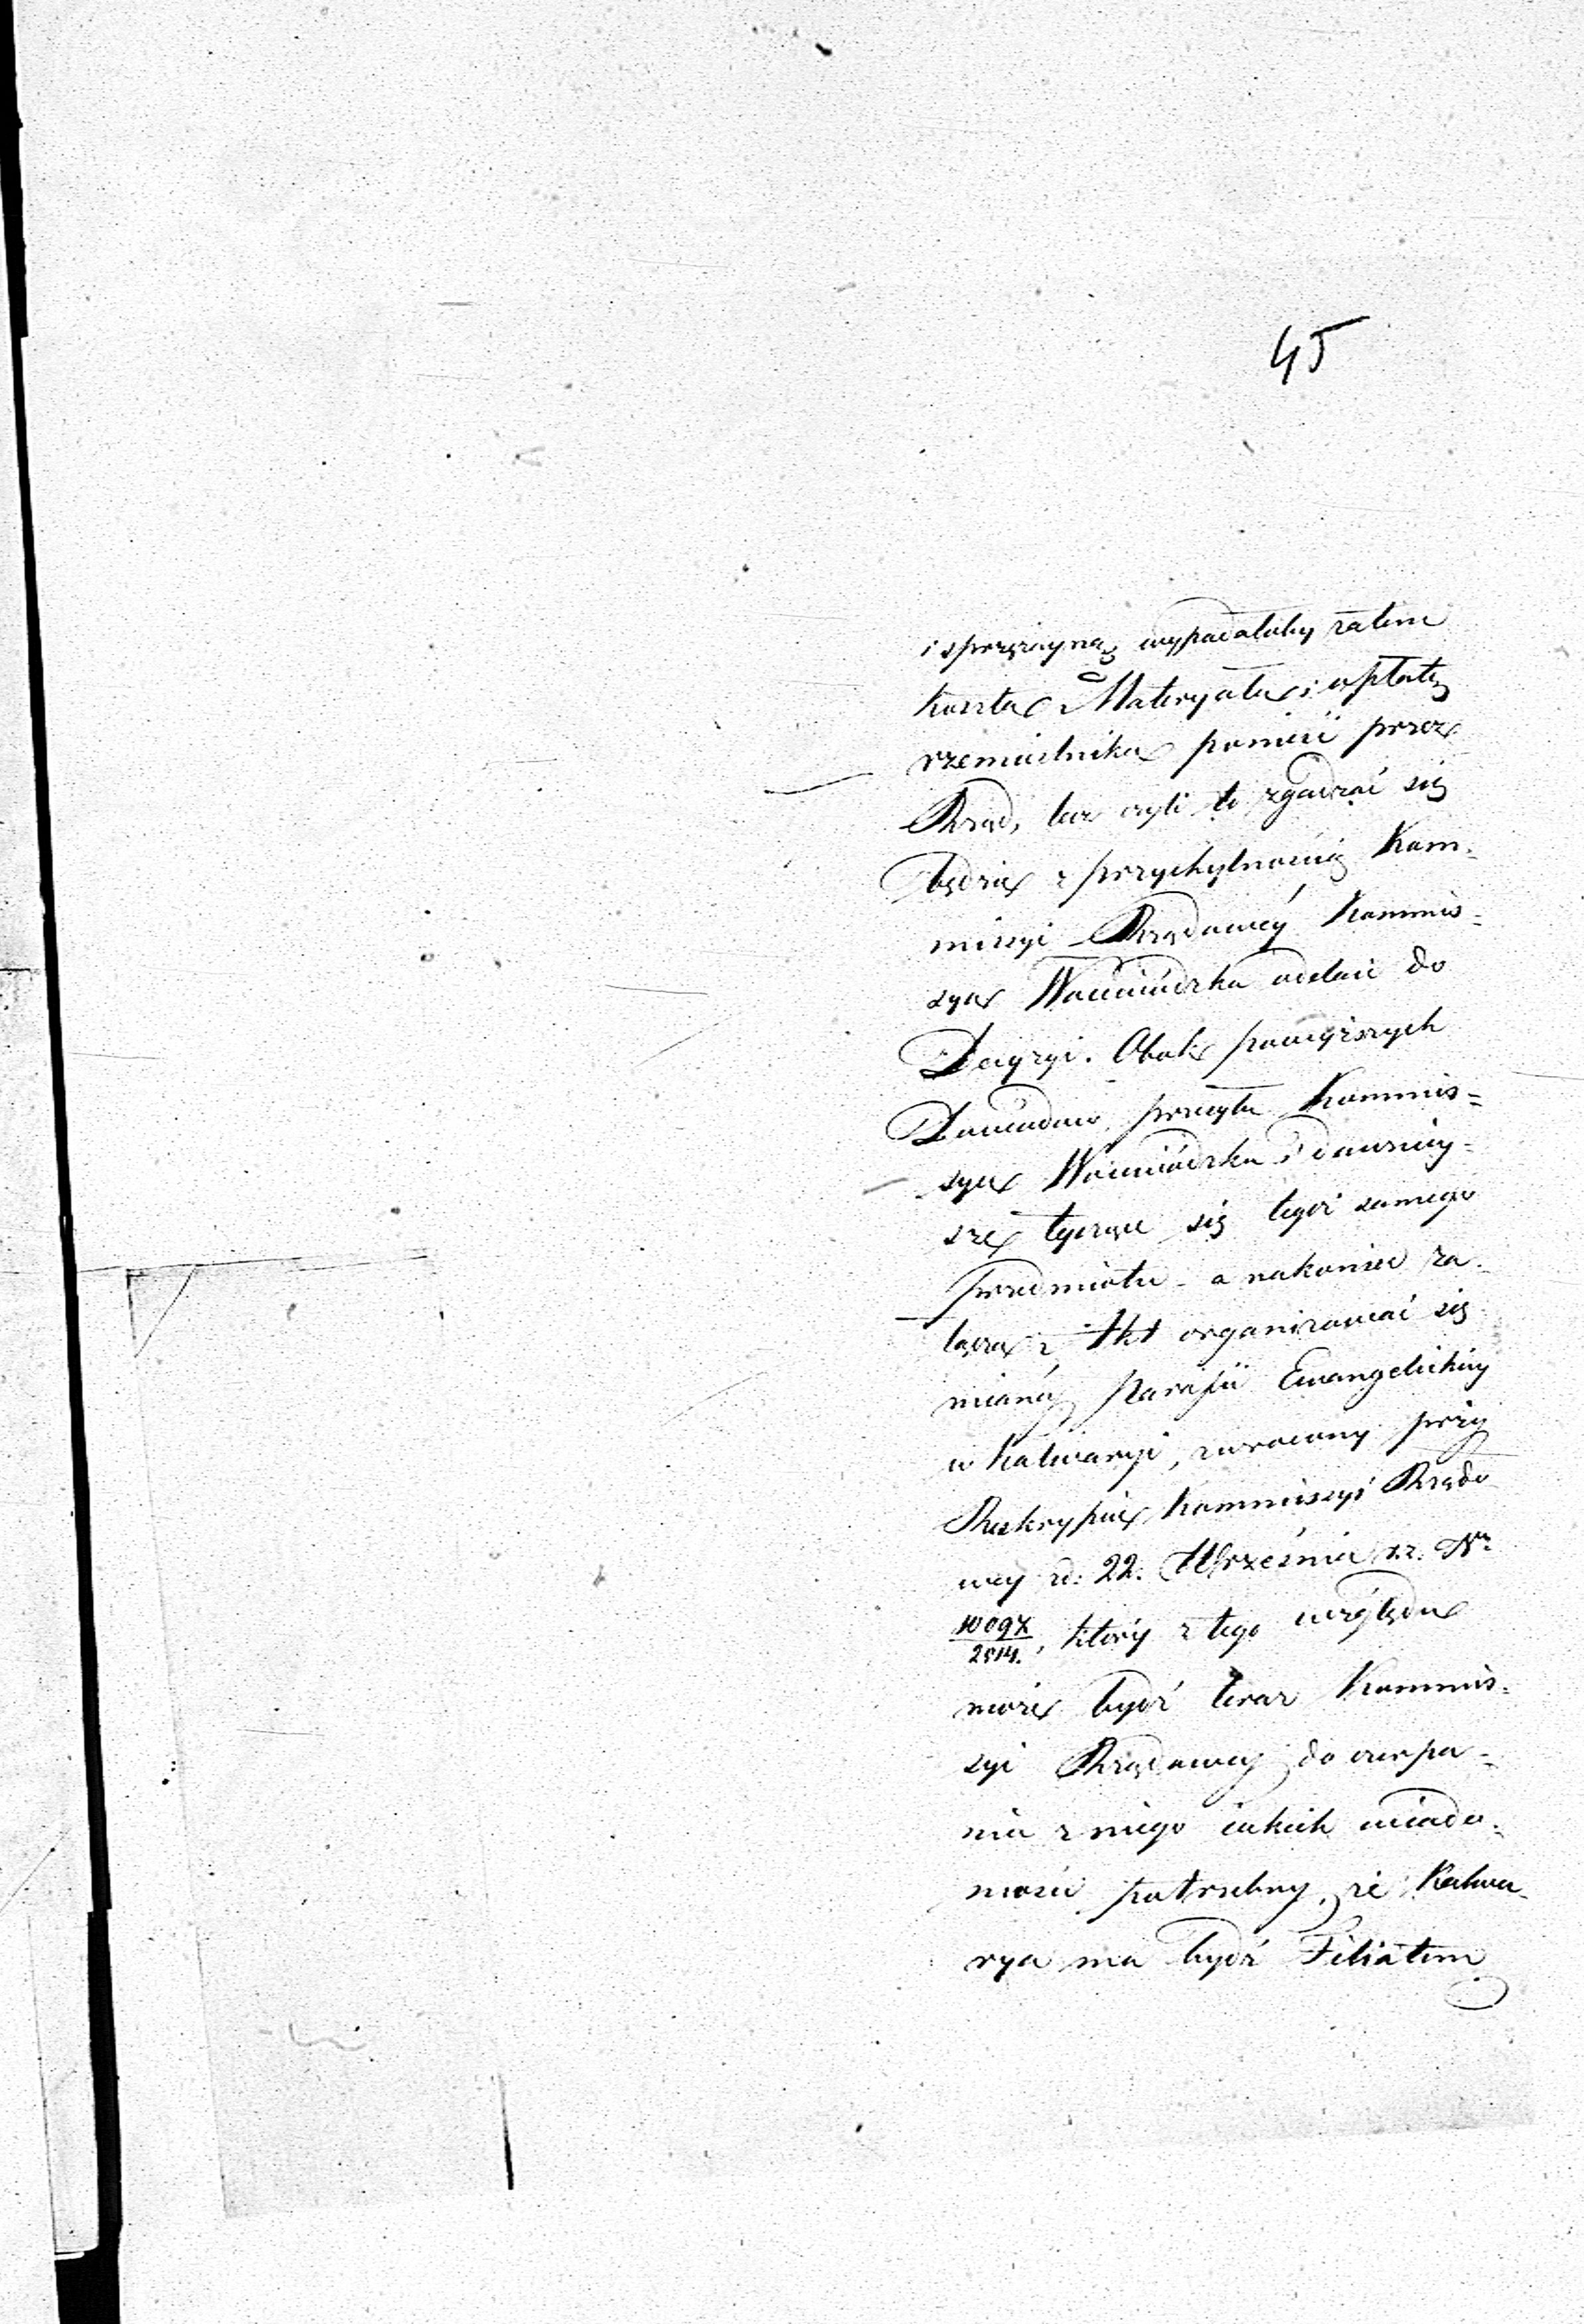 45
i sprężyną wypadałoby zatem
koszta Materyału i opłatę
rzemieślnika ponieść przez
Rząd, lecz czyli to zgadzać się
będzie z przychylnością Kom-
missyi Rządowéy Kommis=
sya Woiewódzka oddaie do
Decyzyi. Obok powyższych
Dowodów przesyła Kommis=
sya Woiewódzka i dawniey-
sze tyczące się tegoż samego
przedmiotu - a nakoniec za-
łącza i Akt organizować się
mianéy Parafii Ewangelickiey
w Kalwaryi, zwrócony przy
Reskrypcie Kommissyi Rządo
wey z d: 22. Września r.z. Nr
10097/2514. który z tego względu
może bydź teraz Kommis-
syi Rządowey do czerpa-
nia z niego iakich wiado-
mości potrzebny, że Kalwa-
rya ma bydź Filiałem